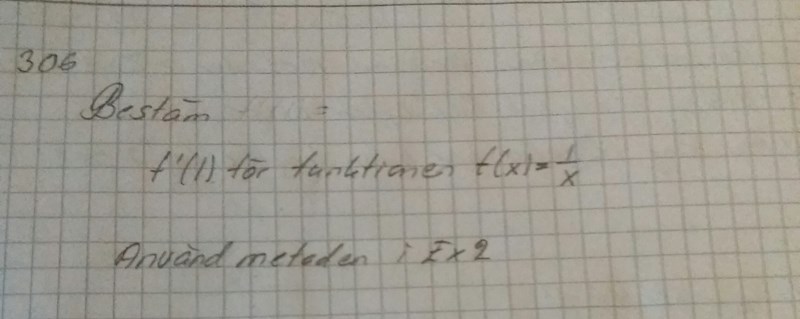 306
Bestäm =
f'(1) för funktionen f(x)=1/x
Använd metoden i Ex 2